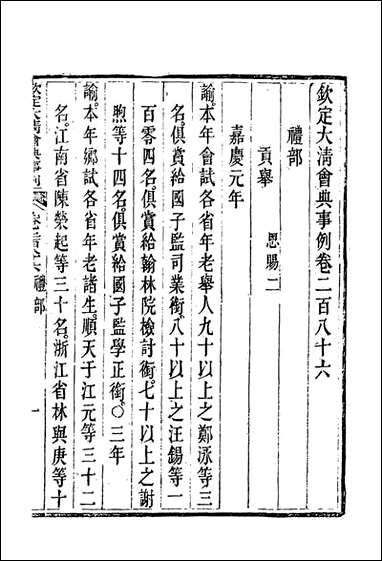 欽定大清會典事例卷二百八十六
禮部
貢舉 恩賜二
嘉慶元年
諭。本年會試各省老舉人九十以上之鄭泳等三
名。俱賞給國子監司業銜。八十以上之汪錫等一
百零四名。俱賞給翰林院檢討銜。七十以上之謝
煦等十四名。俱賞給國子監學正銜。〇三年
諭。本年鄉試各省年老諸生。順天于江元等三十二
名。江南省陳榮起等三十名。浙江省林與庚等十
欽定大清會典事例 卷二百八十六 禮部 一